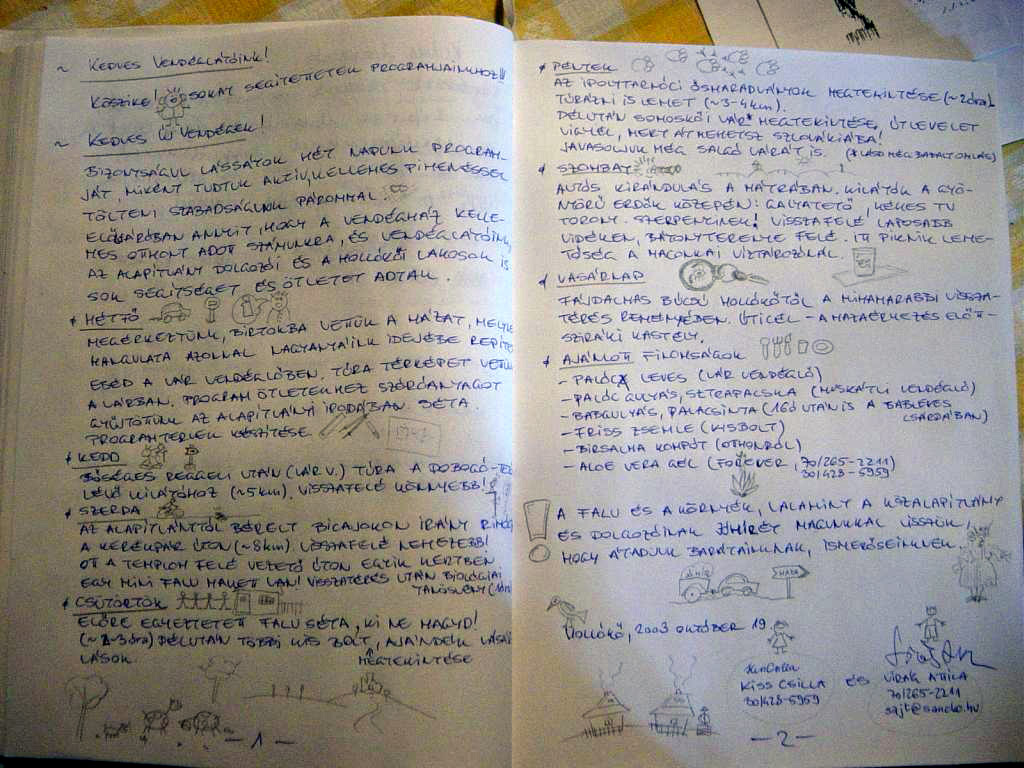 ~ KEDVES VENDÉGLÁTÓINK!
KÖSZIKE! SOKAT SEGÍTETTETEK PROGRAMJAINKHOZ!!
~ KEDVES ÚJ VENDÉGEK!
BIZONYSÁGUL LÁSSÁTOK HÉT NAPUNK PROGRAM-
JÁT, MIKÉNT TUDTUK AKTÍV, KELLEMES PIHENÉSSEL
TÖLTENI SZABADSÁGUNK PÁROMMAL.
ELŐJÁRÓBAN ANNYIT, HOGY A VENDÉGHÁZ KELLE-
MES OTTHONT ADOTT SZÁMUNKRA, ÉS VENDÉGLÁTÓINK,
AZ ALAPÍTVÁNY DOLGOZÓI ÉS A HOLLÓKŐI LAKOSOK IS
SOK SEGÍTSÉGET ÉS ÖTLETET ADTAK.
* HÉTFŐ
MEGÉRKEZTÜNK, BIRTOKBA VETTÜK A HÁZAT, MELYNEK
HANGULATA AZONNAL NAGYANYÁINK IDEJÉBE REPÍTETT
EBÉD A VÁR VENDÉGLŐBEN. TÚRA TÉRKÉPET VETTÜNK
A VÁRBAN. PROGRAM ÖTLETEKHEZ SZÓRÓANYAGOT
GYŰJTÖTTÜNK AZ ALAPÍTVÁNYI IRODÁBAN. SÉTA.
PROGRAMTERVEK KÉSZÍTÉSE
* KEDD
BŐSÉGES REGGELI UTÁN (VÁR V.) TÚRA A DOBOGÓ-TE
LÉVŐ KILÁTÓHOZ (~5km). VISSZAFELÉ KÖNNYEBB!
* SZERDA
AZ ALAPÍTVÁNYTÓL BÉRELT BICAJOKON IRÁNY RIMÓC
A KERÉKPÁR ÚTON (~8km). VISSZAFELÉ NEHEZEBB!
OTT A TEMPLOM FELÉ VEZETŐ ÚTON EGYIK KERTBEN
EGY MINI FALU MAKETT VAN! VISSZATÉRÉS UTÁN BIOLÓGIAI
TANÖSVÉNY
* CSÜTÖRTÖK
ELŐRE EGYEZTETETT FALU SÉTA, KI NE HAGYD!
(~2-3óra) DÉLUTÁN TÖBBI KIS BOLT, AJÁNDÉK VÁSÁR
LÁSOK.
MEGTEKINTÉSE
– 1 –
* PÉNTEK
AZ IPOLYTARNÓCI ŐSMARADVÁNYOK MEGTEKINTÉSE (~2óra)
TÚRÁZNI IS LEHET (~3-4km).
DÉLUTÁN SOMOSKŐI VÁR* MEGTEKINTÉSE, ÚTLEVELET
VIGYÉL, MERT ÁTMEHETSZ SZLOVÁKIÁBA!
JAVASOLJUK MÉG SALGÓ VÁRÁT IS. (* LÁSD MÉG BAZALTOMLÁS)
* SZOMBAT
AUTÓS KIRÁNDULÁS A MÁTRÁBAN. KILÁTÓK A GYÖ-
NYÖRŰ ERDŐK KÖZEPÉN: GALYATETŐ, KÉKES TV
TORONY. SZERPENTINEK! VISSZAFELÉ LAPOSABB
VIDÉKEN, BÁTONYTERENYE FELÉ. ITT PIKNIK LEHE-
TŐSÉG A MACONKAI VÍZTÁROZÓNÁL.
* VASÁRNAP
FÁJDALMAS BÚCSÚ HOLLÓKŐTŐL A MIHAMARABBI VISSZA-
TÉRÉS REMÉNYÉBEN. ÚTICÉL – A HAZAÉRKEZÉS ELŐTT-
SZIRÁKI KASTÉLY.
* AJÁNLOTT FINOMSÁGOK
– PALÓC LEVES (VÁR VENDÉGLŐ)
– PALÓC GULYÁS, SZTRAPACSKA (MUSKÁTLI VENDÉGLŐ)
– BABGULYÁS, PALACSINTA (16ó UTÁN IS A BABLEVES
CSÁRDÁBAN)
– FRISS ZSEMLE (KISBOLT)
– BIRSALMA KOMPÓT (OTTHONRÓL)
– ALOE VERA GÉL (FOREVER, 70/265-2211
30/428-5959
! A FALU ÉS A KÖRNYÉK, VALAMINT A KÖZALAPÍTVÁNY
ÉS DOLGOZÓINAK JÓHÍRÉT MAGUNKKAL VISSZÜK!
HOGY ÁTADJUK BARÁTAINKNAK, ISMERŐSEINKNEK.
HAZA
HOLLÓKŐ, 2003 OKTÓBER 19.
KISS CSILLA
30/428-5959
ÉS
VIRÁG ATTILA
70/265-2211
sajt@sancho.hu
– 2 –